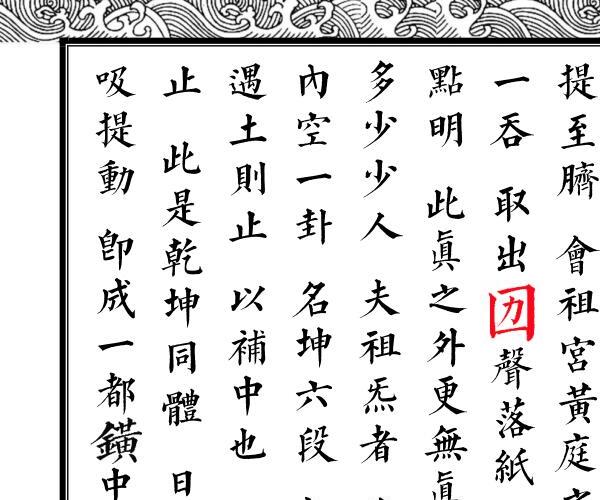 提至臍 會祖宮黃庭
一吞 取出囡聲落紙
點明 此眞之外更無眞
多少少人 夫祖炁者
內空一卦 名坤六段
遇土則止 以補中也
止 此是乾坤同體 日
吸提動 卽成一都鐄中